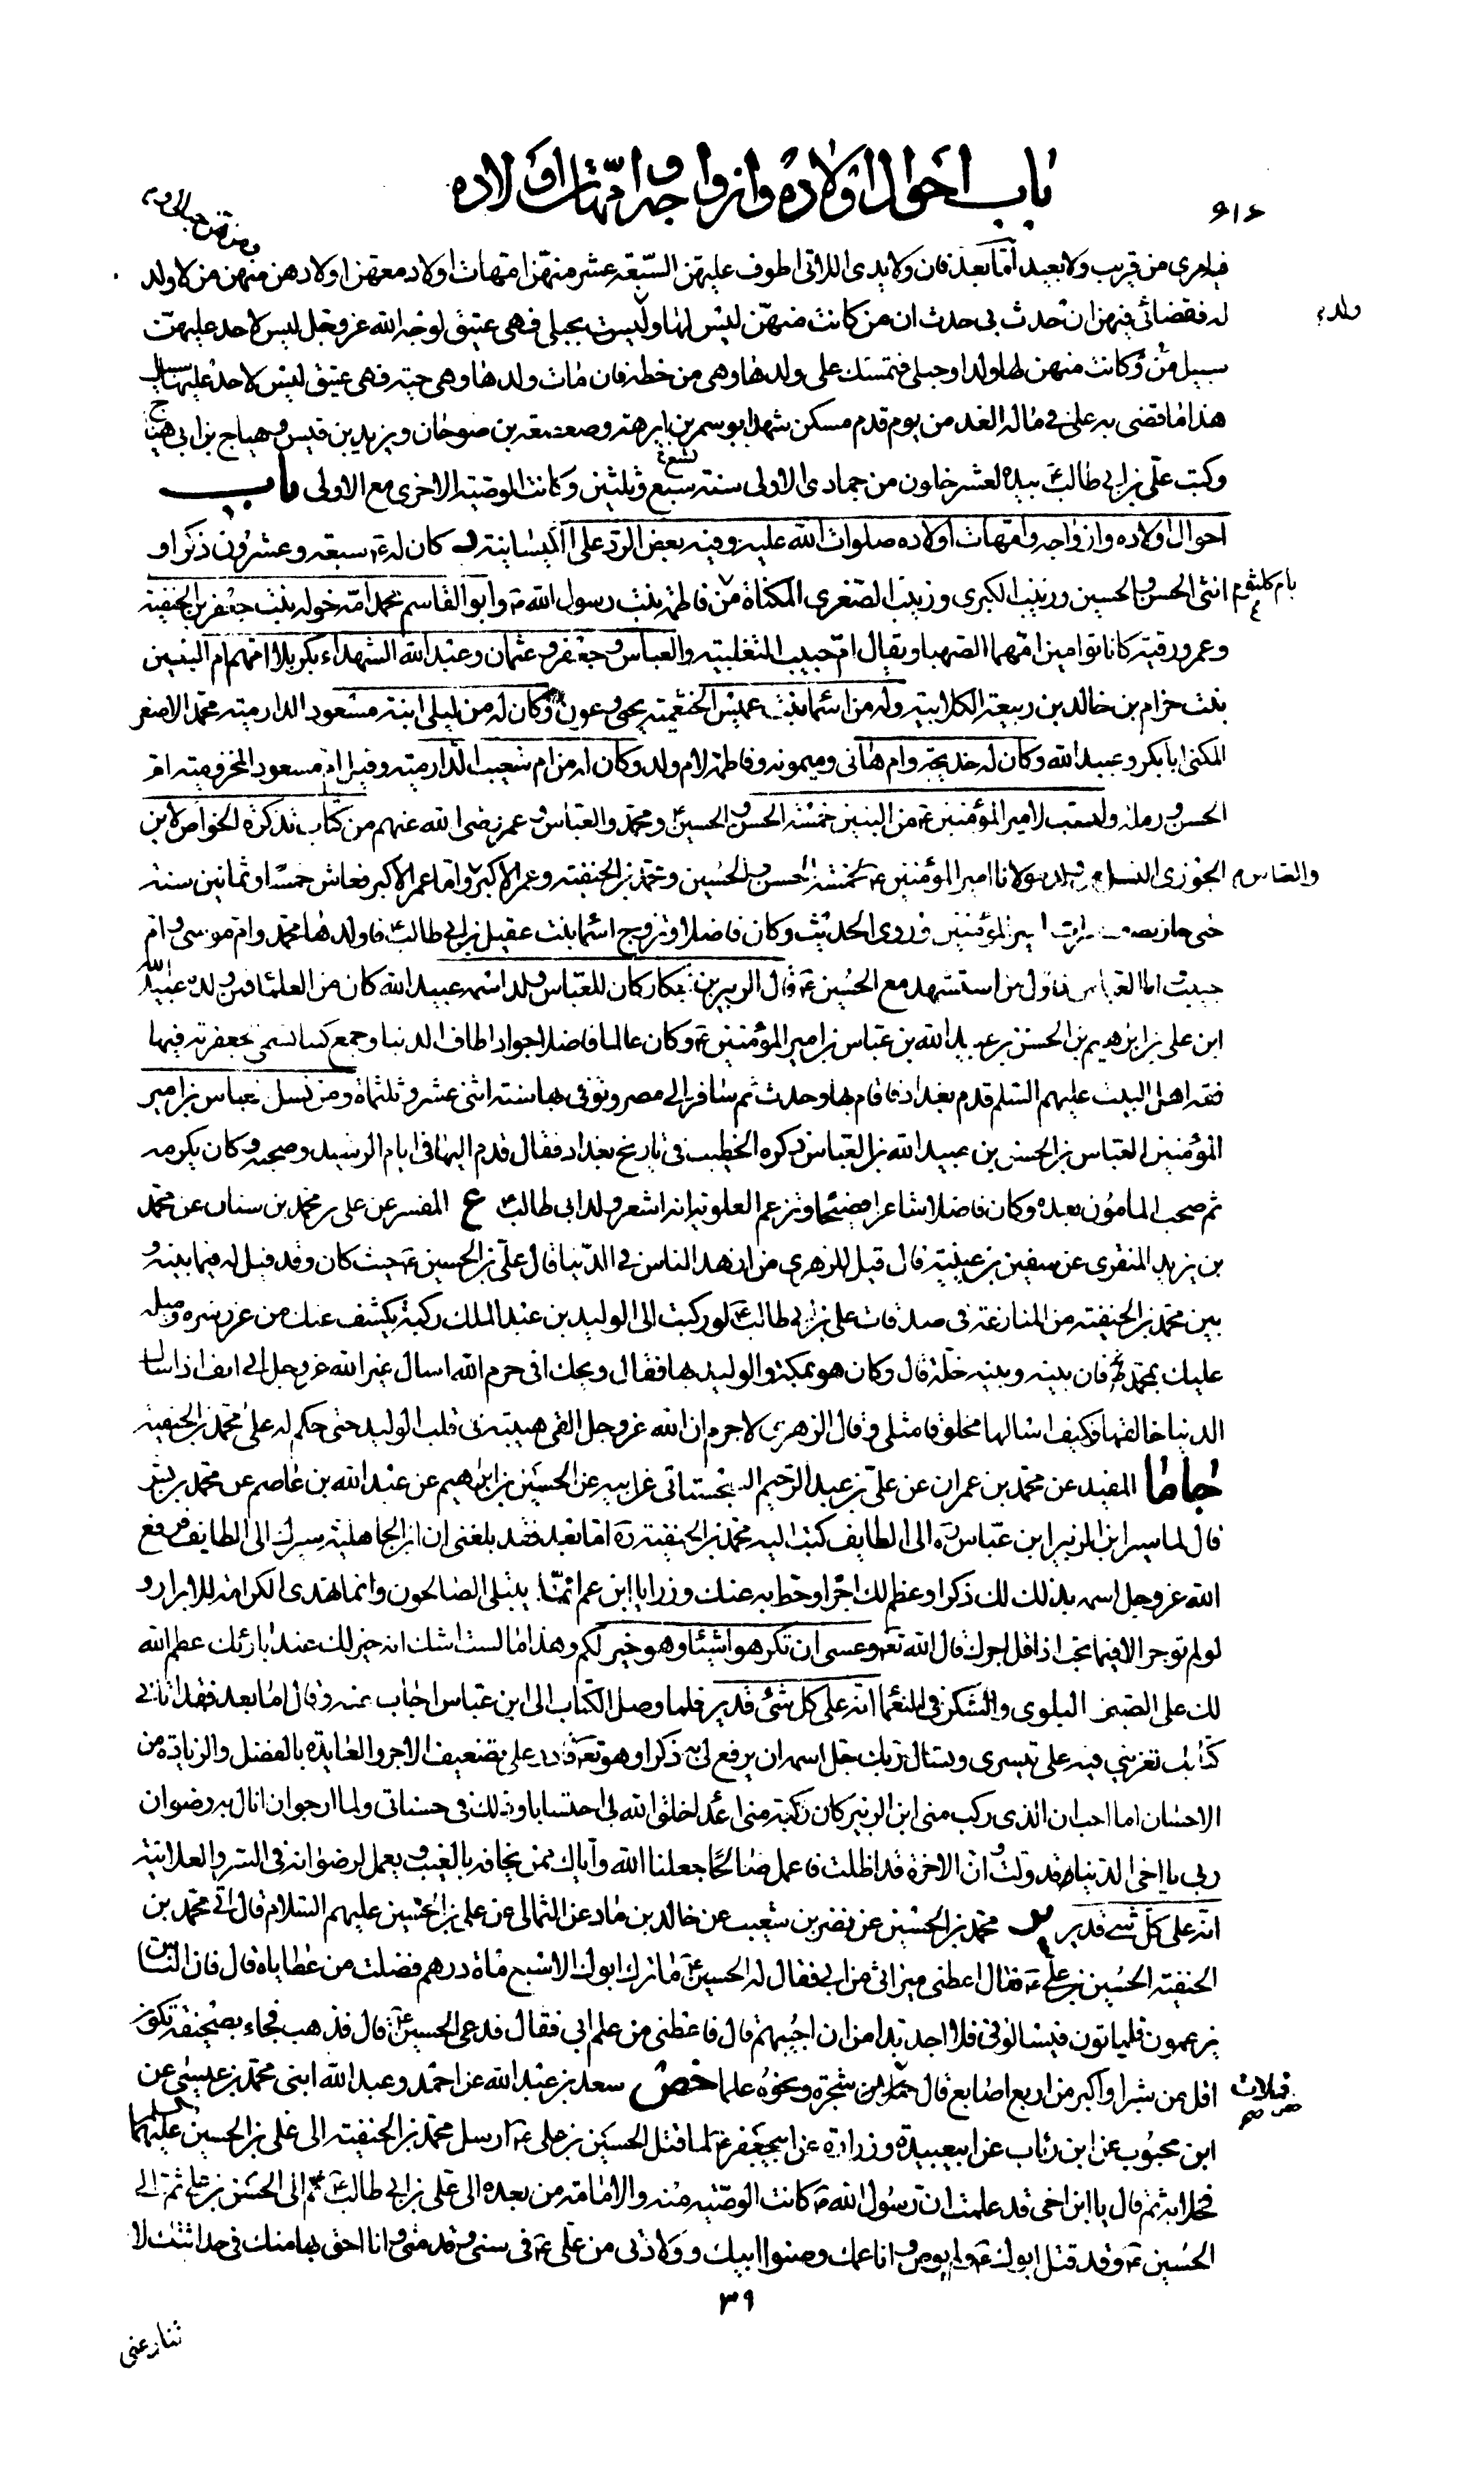 باب احوال اولاده وازواجه وامّهات اولاده
٦١٦
ومنهن حبالى و
فيامرى من قريب ولا بعيد اما بعد فان ولايدى اللاتى اطوف عليهن السبعة عشر منهن امهات اولاد معهن اولادهن منهن من لا ولد
ولد
له فقضائى فيهن ان حدث بى حدث ان من كانت منهن ليس لها ولد وليست بحبلى فهى عتيق لوجه الله عز وجل ليس لاحد عليهن
سبيل ومن كانت منهن لها ولد او حبلى فتمسك على ولدها وهى من حظه فان مات ولدها وهى حية فهى عتيق ليس لاحد عليها سبيل
هذا ما قضى به على فى ماله الغد من يوم قدم مسكن شهد ابو سمر بن ابرهة وصعصعة بن صوحان ويزيد بن قيس وهياج بن ابى هياج
وكتب على بن ابى طالب ع بيده لعشر خلون من جمادى الاولى سنة سبع وثلثين وكانت الوصية الاخرى مع الاولى باب
تسع
احوال اولاده وازواجه وامهات اولاده صلوات الله عليه وفيه بعض الرد على الكيسانية كان له ع سبعة وعشرون ذكرا و
بام كلثوم
انثى الحسن والحسين وزينب الكبرى وزينب الصغرى المكناة من فاطمة بنت رسول الله ص وابو القاسم محمد امه خولة بنت جعفر بن الحنفية
وعمر ورقية كانا توامين امهما الصهبا ويقال ام حبيب التغلبية والعباس وجعفر وعثمان وعبد الله الشهداء بكربلا امهم ام البنين
بنت حزام بن خالد بن ربيعة الكلابية وله من اسماء بنت عميس الخثعمية يحيى وعون وكان له من ليلى ابنة مسعود الدارمية محمد الاصغر
المكنى ابا بكر وعبيد الله وكان له خديجة وام هانى وميمونه وفاطمة لام ولد وكان له من ام شعيب الدارمية وقيل ام مسعود المخزومية ام
الحسن ورملة ولعقب لامير المؤمنين ع من البنين خمسة الحسن والحسين ع ومحمد والعباس وعمر رضى الله عنهم من كتاب تذكرة الخواص لابن
الجوزى النسل من ولد مولانا امير المؤمنين ع لخمسة الحسن والحسين ومحمد بن الحنفية وعمر الاكبر واما عمر الاكبر فعاش خمسا وثمانين سنة
والعباس
حتى حاز نصف ميراث امير المؤمنين وروى الحديث وكان فاضلا وتزوج اسما بنت عقيل بن ابى طالب ع فاولدها محمد وام موسى وام
حبيبت اما العباس فاول من استشهد مع الحسين ع قال الزبير بن بكار كان للعباس ولد اسمه عبيد الله كان من العلما فمن ولده عبيد الله
ابن على بن ابرهيم بن الحسن بن عبيد الله بن عباس بن امير المؤمنين ع وكان عالما فاضلا جوادا طاف الدنيا وجمع كتبا تسمى بجعفرية فيها
فقه اهل البيت عليهم السلم قدم بغداد فاقام بها وحدث ثم سافر الى مصر وتوفى بها سنة اثنى عشر وثلثماة ومن نسل عباس بن امير
المؤمنين العباس بن الحسن بن عبيد الله بن العباس ذكره الخطيب فى تاريخ بغداد فقال قدم اليها فى ايام الرشيد وصحبه وكان يكرمه
ثم صحب المامون بعده وكان فاضلا شاعرا فصيحا وتزعم العلوية انه اشعر ولد ابى طالب ع ع المفسر عن على بن محمد بن سنان عن محمد
بن يزيد المنقرى عن سفين بن عيينة قال قيل للزهرى من ازهد الناس فى الدنيا قال على بن الحسين ع حيث كان وقد قيل له فيما بينه و
بين محمد بن الحنفية من المنازعة فى صدقات على بن ابى طالب ع لو ركبت الى الوليد بن عبد الملك ركبة لكشف عنك من غرر شره وميله
عليك بمحمد فان بينه وبينه خلة قال وكان هو بمكة والوليد بها فقال ويحك افى حرم الله اسال غير الله عز وجل انى انف اذ اسال
الدنيا خالقها فكيف اسالها مخلوقا مثلى وقال الزهرى لا جرم ان الله عز وجل القى هيبته فى قلب الوليد حتى حكم له على محمد بن الحنفية
جا ما المفيد عن محمد بن عمران عن على بن عبد الرحيم السجستانى عن ابيه عن الحسين بن ابرهيم عن عبد الله بن عاصم عن محمد بن بشر
قال لما سير ابن الزبير ابن عباس ره الى الطايف كتب اليه محمد بن الحنفية ره اما بعد فقد بلغنى ان ابن الجاهلية سيرك الى الطايف فرفع
الله عز وجل اسمه بذلك لك ذكرا وعظم لك اجرا وحط به عنك وزرا يا ابن عم انما يبتلى الصالحون وانما تهدى الكرامة للابرار و
لو لم توجر الا فيما تحب اذا قل اجرك قال الله تع وعسى ان تكرهوا شيئا وهو خير لكم وهذا ما لست اشك انه خير لك عند بارئك عظم الله
لك على الصبر البلوى والشكر فى النعما انه على كل شىء قدير فلما وصل الكتاب الى ابن عباس اجاب عنه وقال اما بعد فقد اتانى
كتابك تعزينى فيه على تسيرى وتسال ربك جل اسمه ان يرفع لى به ذكرا وهو تع قادر على تضعيف الاجر والعايدة بالفضل والزيادة من
الاحسان اما احب ان الذى ركب منى ابن الزبير كان ركبه منى اعدا خلق الله لى احتسابا وذلك فى حسناتى ولما ارجو ان انال به رضوان
ربى يا اخى الدنيا قد ولت وان الاخرة قد اظلت فاعمل صالحا جعلنا الله واياك ممن يخافه بالغيب ويعمل لرضوانه فى السر والعلانية
انه على كل شىء قدير ير محمد بن الحسين عن نضر بن شعيب عن خالد بن ماد عن الثمالى عن على بن الحسين عليهم السلام قال اتى محمد بن
الحنفية الحسين بن على ع فقال اعطنى ميراثى من ابى فقال له الحسين ع ما ترك ابوك الا سبع ماة درهم فضلت من عطاياه قال فان الناس
يزعمون فلياتون فيسالونى فلا اجد بدا من ان اجيبهم قال فاعطنى من علم ابى فقال فدعى الحسين ع قال فذهب فجاء بصحيفة تكون
اقل من شبر او اكبر من اربع اصابع قال فملات شجرة ونحوه علما خص سعد بن عبد الله عن احمد وعبد الله ابنى محمد بن عيسى عن
ابن محبوب عن ابن رئاب عن ابى عبيدة وزرارة عن ابى جعفر ع لما قتل الحسين بن على ع ارسل محمد بن الحنفية الى على بن الحسين عليهما السلم
فخلا به ثم قال يا ابن اخى قد علمت ان رسول الله ص كانت الوصية منه والامامة من بعده الى على بن ابى طالب ع ثم الى الحسن بن على ثم الى
الحسين ع وقد قتل ابوك ع ولم يوص وانا عمك وصنو ابيك وولادتى من على ع فى سنى وقدمتى وانا احق بها منك فى حداثتك لا
٣٩
تنازعنى